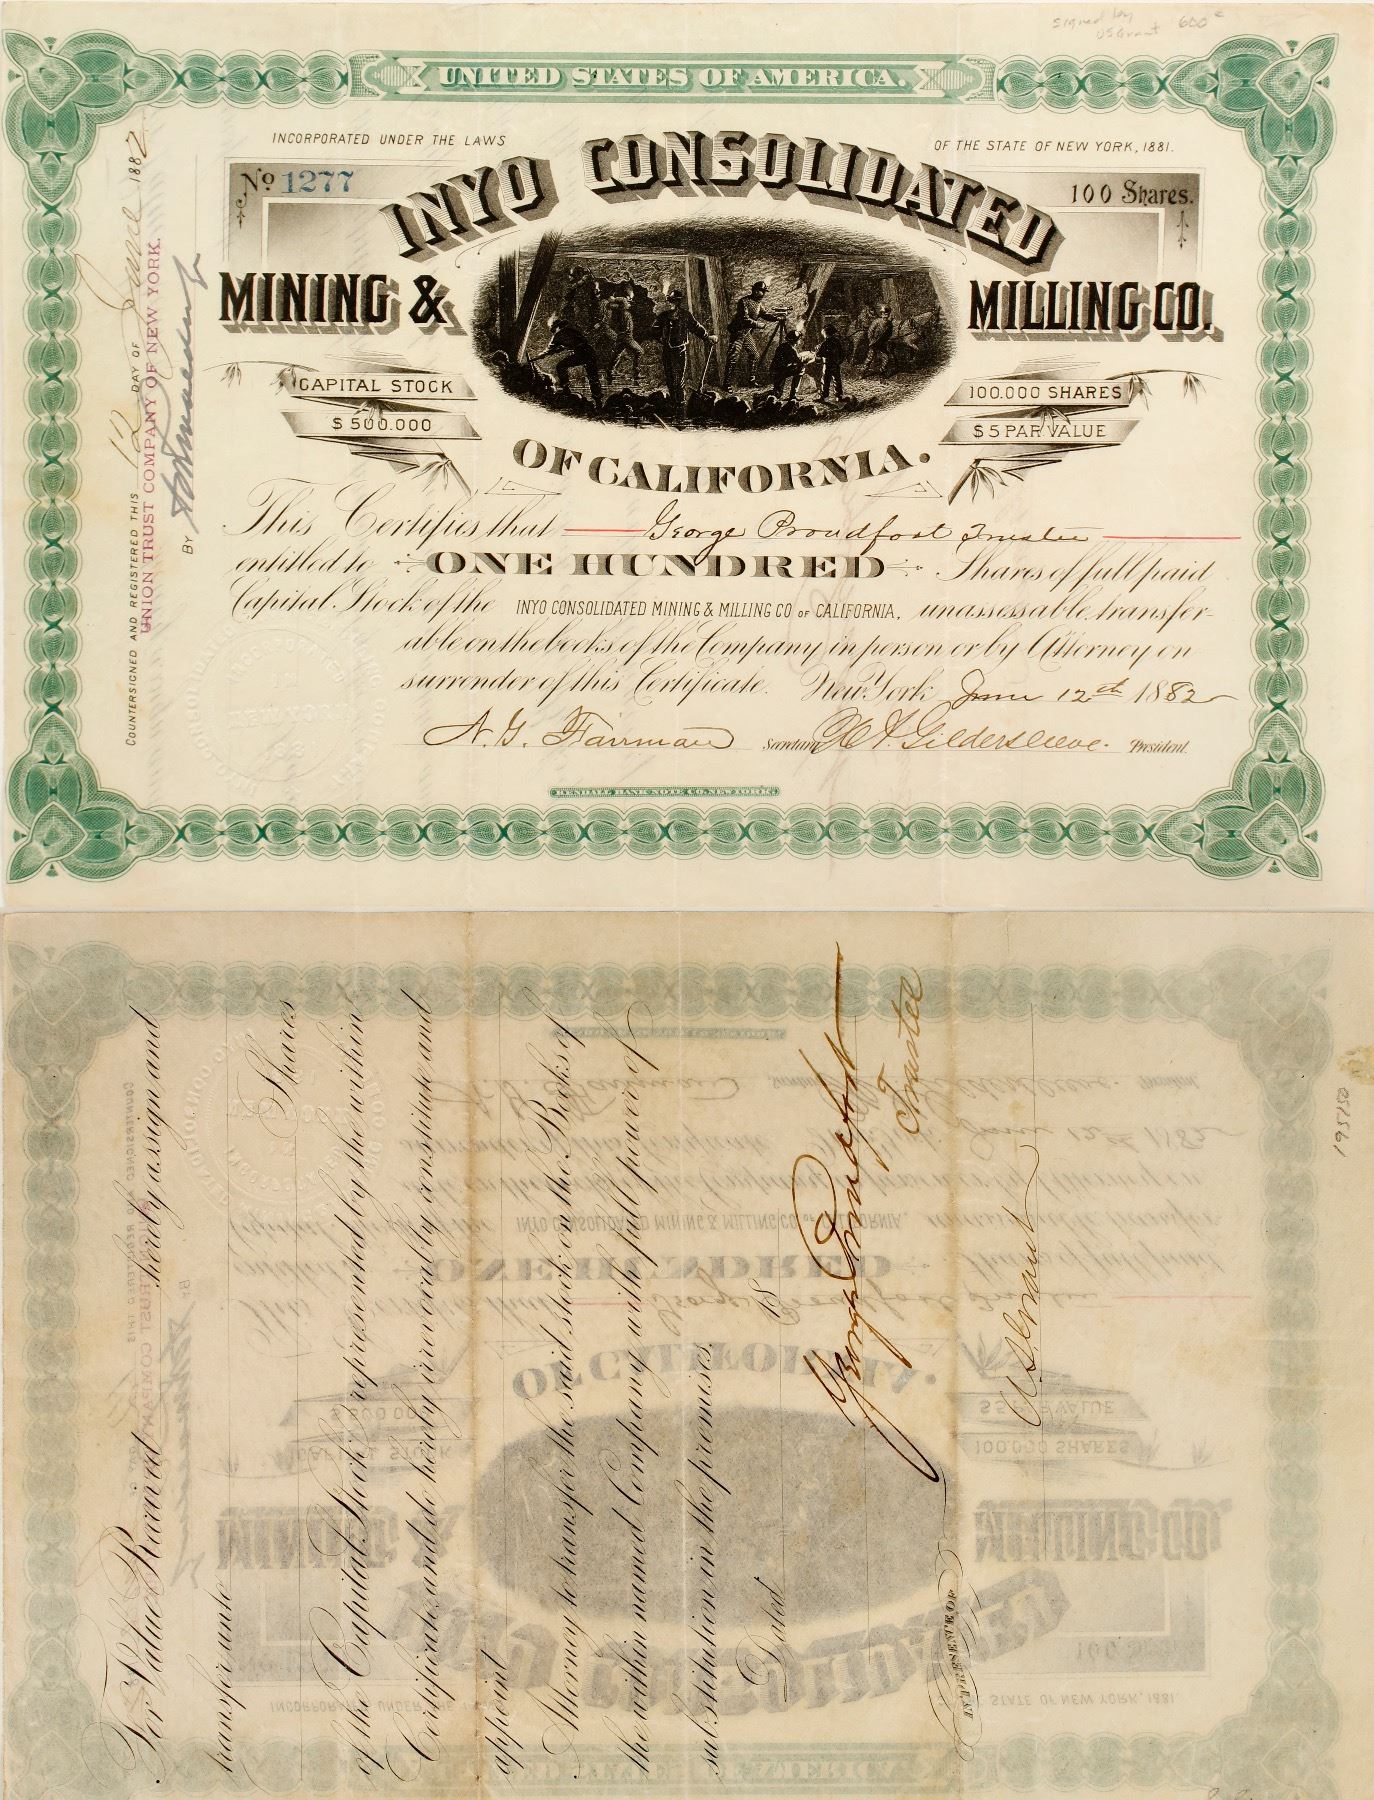 signed by 600
US Grant
UNITED STATES OF AMERICA.
INCORPORATED UNDER THE LAWS
OF THE STATE OF NEW YORK, 1881.
No 1277
100 Shares.
INYO CONSOLIDATED
MINING & MILLING CO.
CAPITAL STOCK
$500.000
100.000 SHARES
$5 PAR VALUE
OF CALIFORNIA.
This Certifies that George Proudfoot Trustee
entitled to ONE HUNDRED Shares of full paid
Capital Stock of the INYO CONSOLIDATED MINING & MILLING CO OF CALIFORNIA, unassessable, transfer-
able on the books of the Company in person or by Attorney on
surrender of this Certificate. New York June 12th 1882
A. G. Fairman Secretary Gildersleeve. President.
KENDALL BANK NOTE CO. NEW YORK.
COUNTERSIGNED AND REGISTERED THIS 12 DAY OF June 1882
UNION TRUST COMPANY OF NEW YORK.
BY
For Value Received hereby assign and
transfer unto
Shares
of the Capital Stock represented by the within
Certificate, and do hereby irrevocably constitute and
appoint
Attorney to transfer the said stock on the Books of
the within named Company with full power of
substitution in the premises.
Dated 18
George Proudfoot
Trustee
IN PRESENCE OF
U.S. Grant
195150